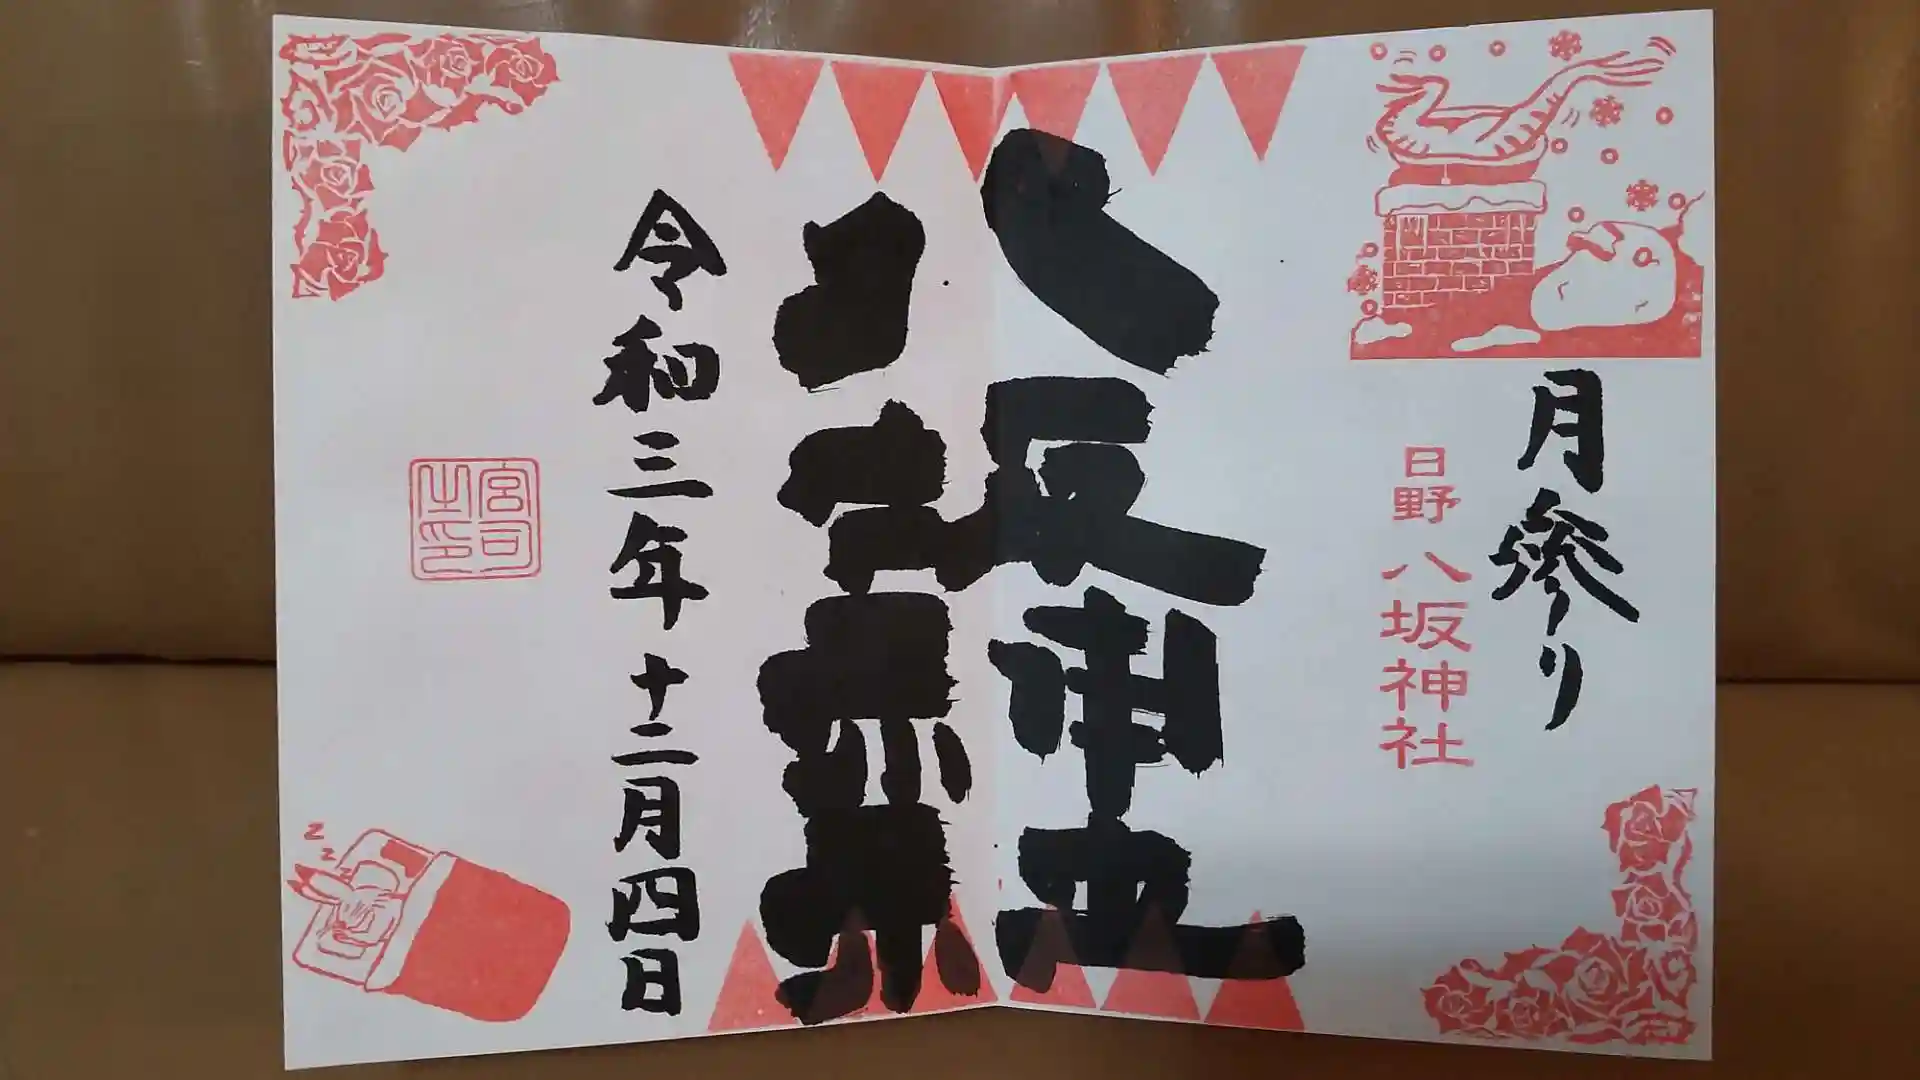 月参り
日野八坂神社
八坂神社
令和三年十二月四日
宮司之印
z
z